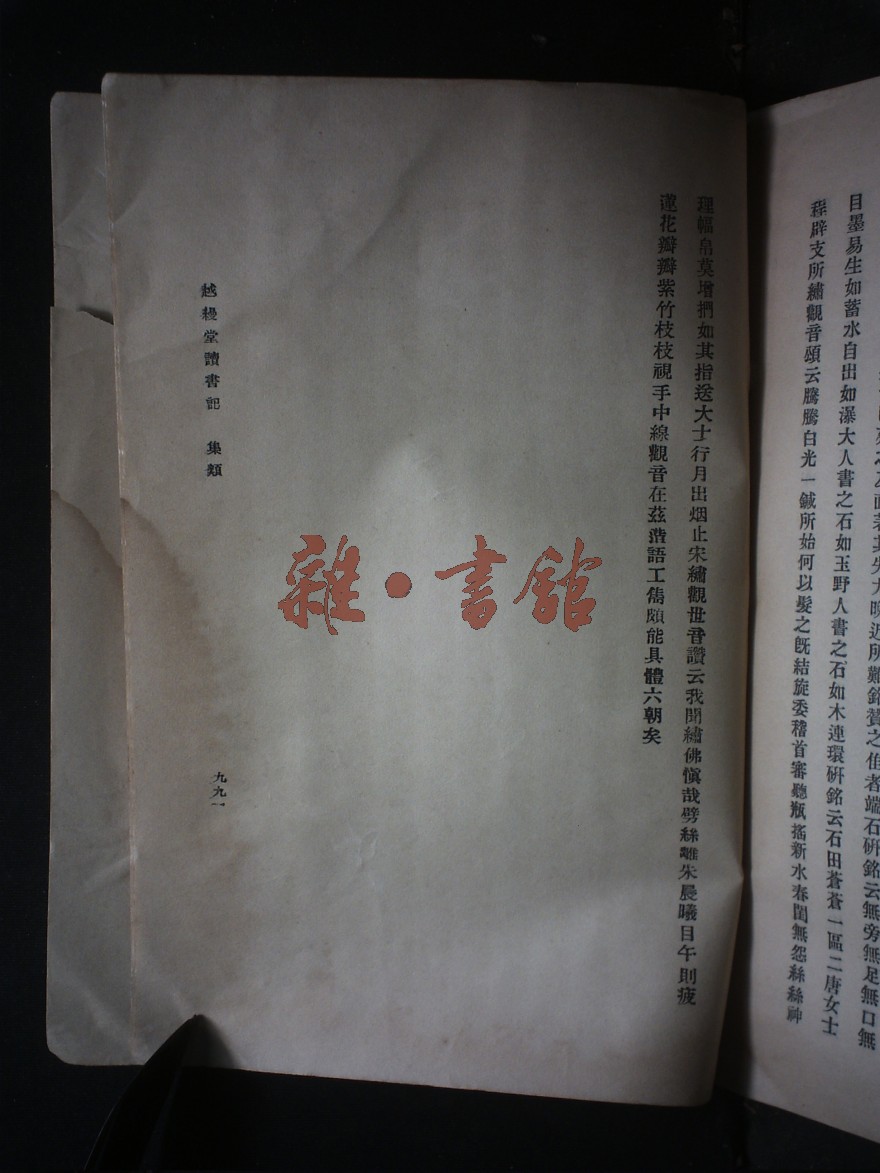 死之及画著其失大晚近所難銘贊之隹者端石硏銘云無旁無足無口無
目墨易生如蓄水自出如瀑大人書之石如玉野人書之石如木連環硏銘云石田蒼蒼一區二唐女士
程辟支所繡觀音頌云騰騰白光一鍼所始何以髮之旣結旋委稽首審聽瓶搖新水春閨無怨絲絲神
理幅帛莫增捫如其指送大士行月出烟止宋繡觀世音讚云我聞繡佛愼哉劈絲離朱晨曦目午則疲
蓮花瓣瓣紫竹枝枝視手中線觀音在茲諧語工雋頗能具體六朝矣
越縵堂讀書記 集類
九九一
雜·書館